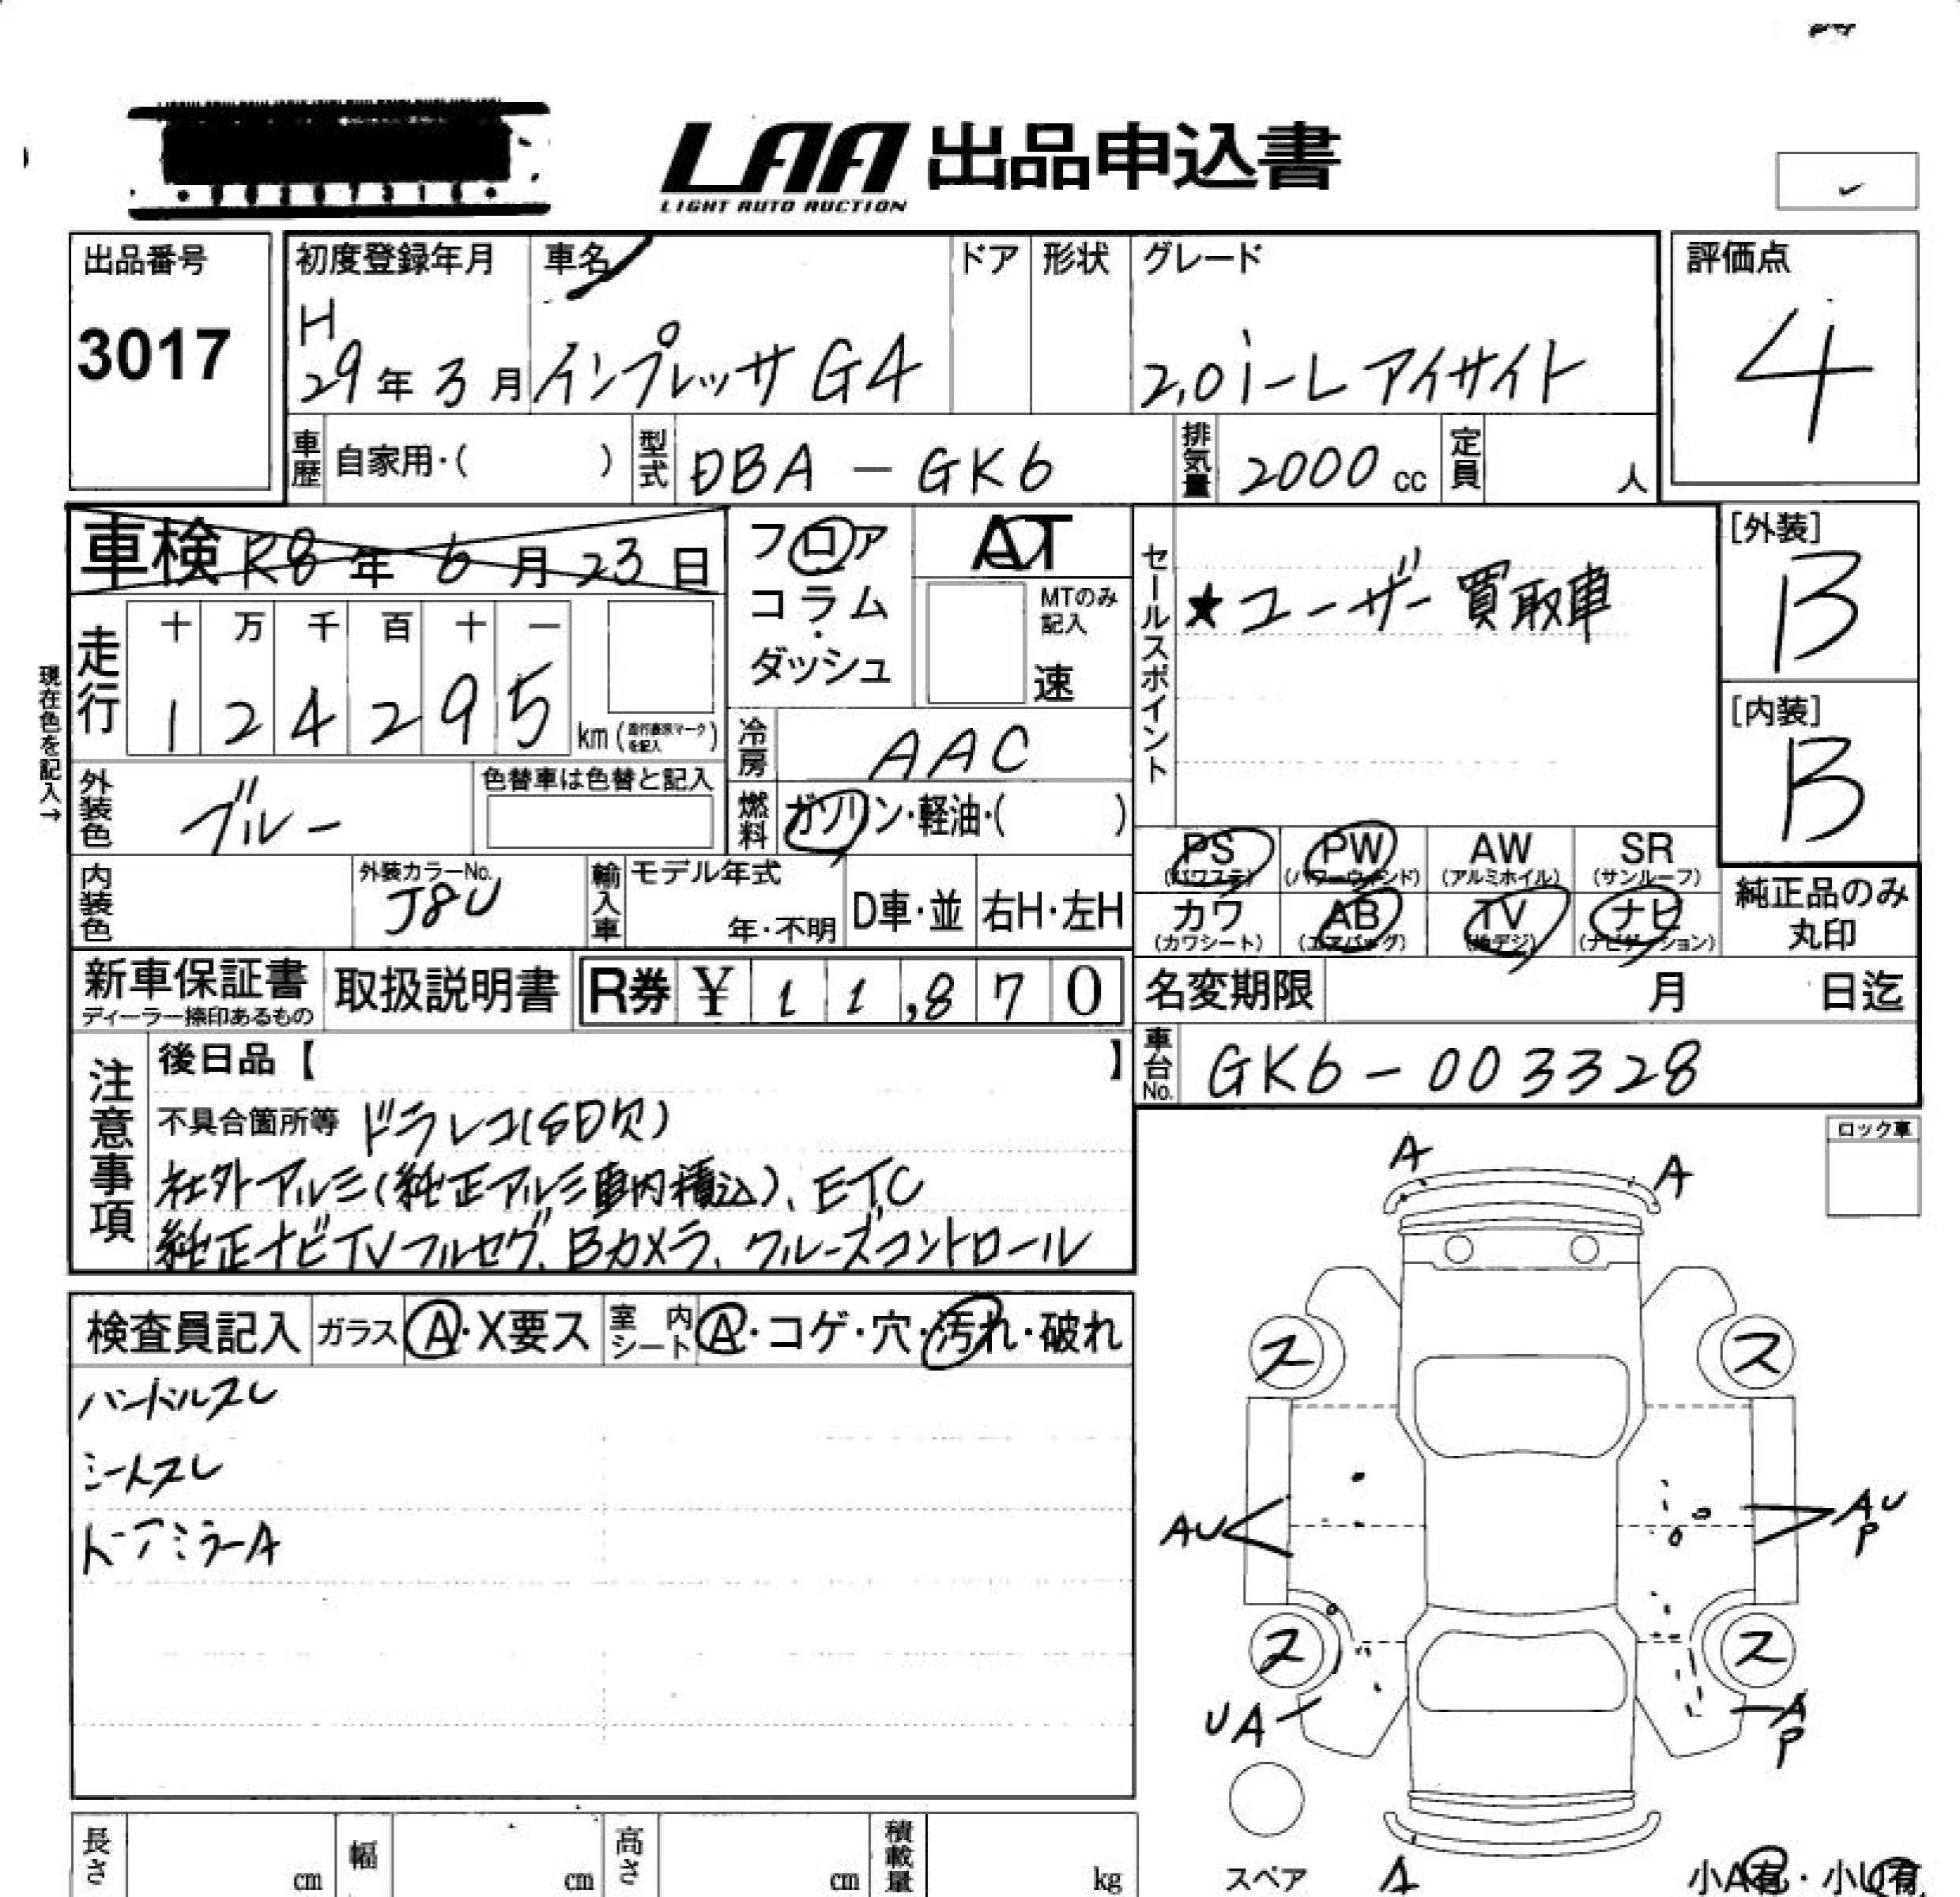 LAA 出品申込書
LIGHT AUTO AUCTION
出品番号
3017
初度登録年月
H
29年3月
車名
インプレッサ G4
ドア
形状
グレード
2.0i-L アイサイト
評価点
4
車歴
自家用・( )
型式
DBA-GK6
排気量
2000cc
定員
人
車検 R8年6月23日
現在色を記入→
走行
十 万 千 百 十 一
1 2 4 2 9 5
km(
を記入 )
フロア
コラム
・
ダッシュ
AT
MTのみ
記入
速
冷房
AAC
燃料
ガソリン・軽油・( )
外装色
ブルー
色替車は色替と記入
内装色
外装カラーNo.
J8U
輸入車
モデル年式
年・不明
D車・並
右H・左H
セールスポイント
★ユーザー買取車
[外装]
B
[内装]
B
PS
(パワステ)
PW
(パワーウィンド)
AW
(アルミホイル)
SR
(サンルーフ)
カワ
(カワシート)
AB
(エアバッグ)
TV
(地デジ)
ナビ
(ナビゲーション)
純正品のみ
丸印
新車保証書
ディーラー捺印あるもの
取扱説明書
R券 ¥ 1 1,8 7 0
名変期限
月 日迄
車台No.
GK6-003328
注意事項
後日品【 】
不具合箇所等 ドラレコ(SD欠)
社外アルミ(純正アルミ車内積込)、ETC
純正ナビTVフルセグ、Bカメラ、クルーズコントロール
検査員記入
ガラス
A・X要ス
室内シート
A・コゲ・穴・汚れ・破れ
ハンドルスレ
シートスレ
ドアミラーA
ロック車
A
A
ス
ス
AU
AU
P
ス
ス
UA
A
P
スペア
A
小A有・小U有
長さ
cm
幅
cm
高さ
cm
積載量
kg